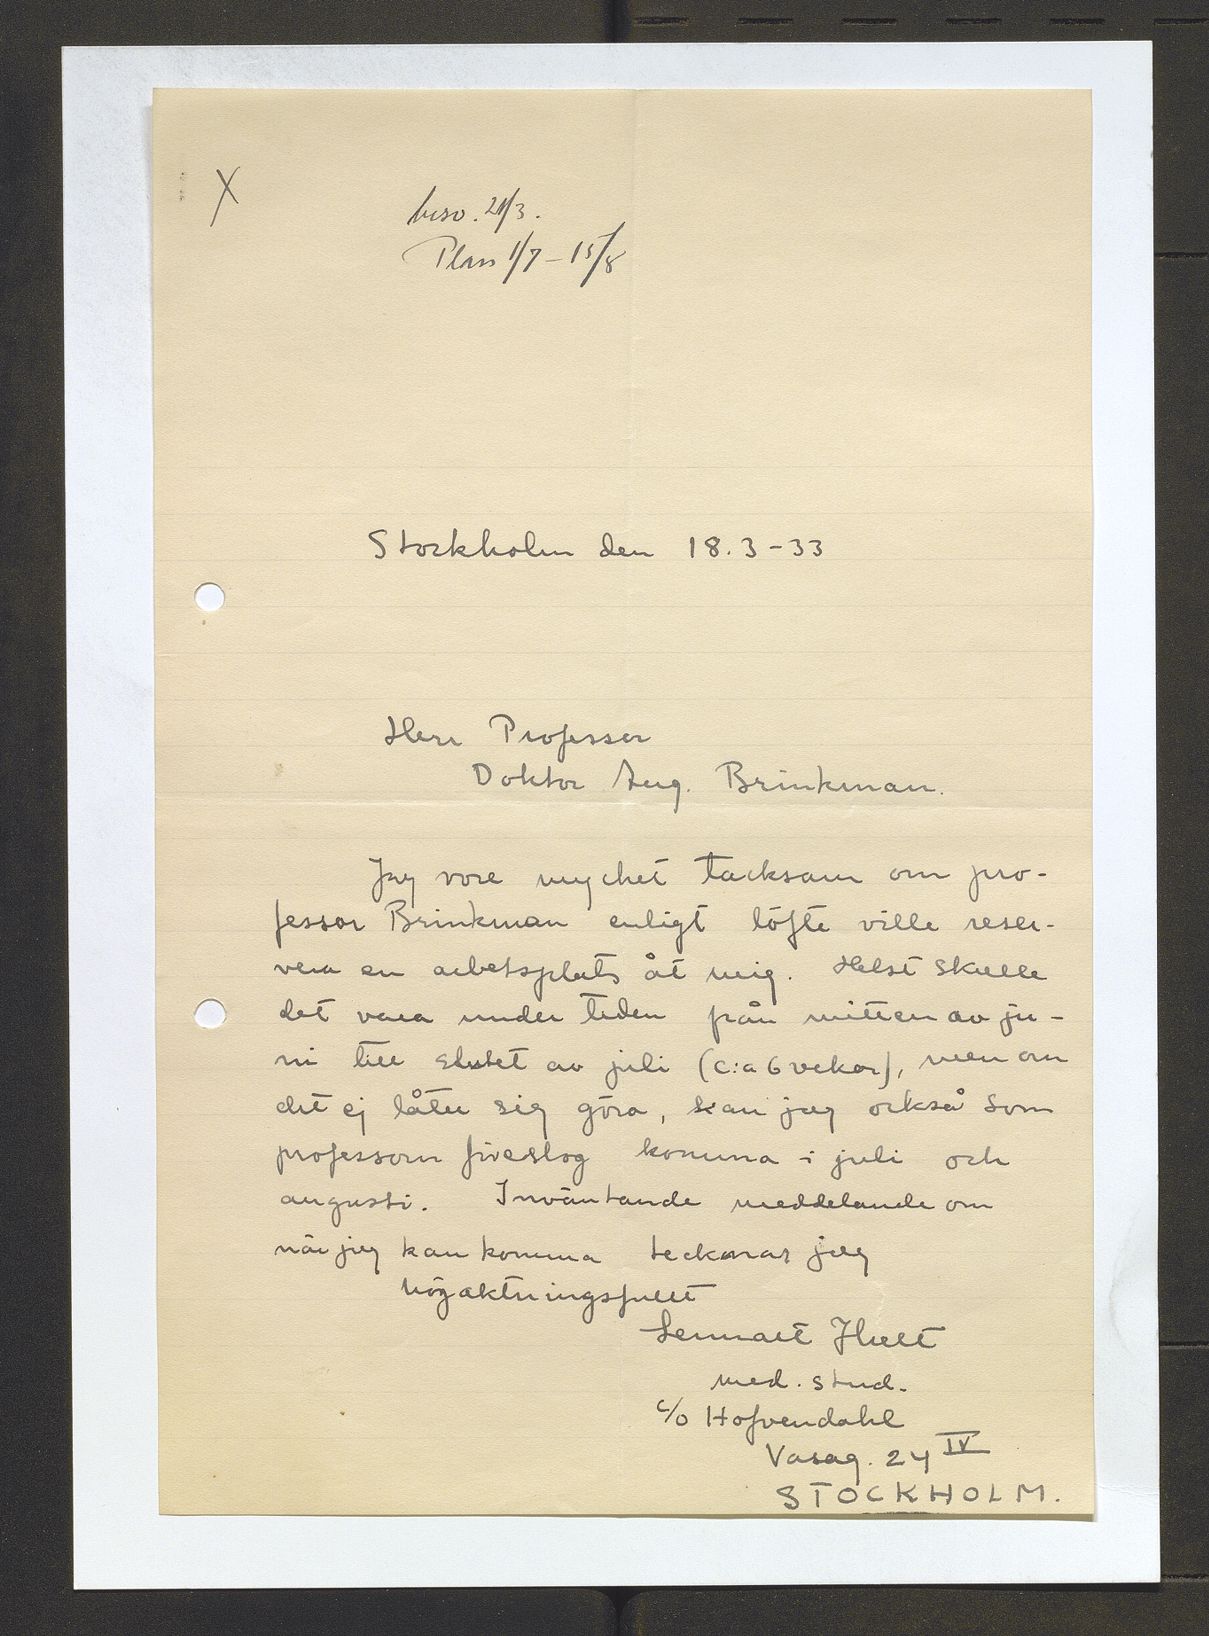 X
besv. 21/3.
Plass 1/7 - 15/8
Stockholm den 18.3-33
Herr Professor
Doktor Aug. Brinkman.
Jag vore mycket tacksam om pro-
fessor Brinkman enligt löfte ville reser-
vera en arbetsplats åt mig. Helst skulle
det vara under tiden från mitten av ju-
ni till slutet av juli (c:a 6 vekor), men om
det ej låter sig göra, kan jag också som
professorn föreslog komma i juli och
augusti. Inväntande meddelande om
när jag kan komma tecknar jag
högaktningsfullt
Lennart Hult
med. stud.
c/o Hofvendahl
Vasag. 24 IV
STOCKHOLM.